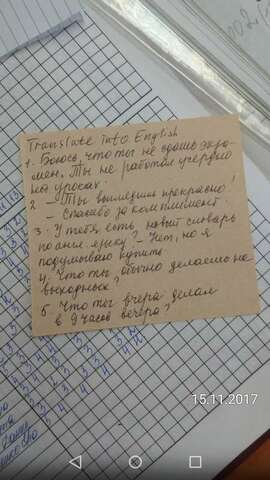 Translate into English
1. Боюсь, что ты не сдашь экза-
мен. Ты не работал усердно
на уроках.
2 – Ты выглядишь прекрасно!
– Спасибо за комплимент.
3. У тебя есть новый словарь
по англ. языку? – Нет, но я
подумываю купить.
4. Что ты обычно делаешь на
выходных?
5. Что ты вчера делал
в 9 часов вечера?
15.11.2017